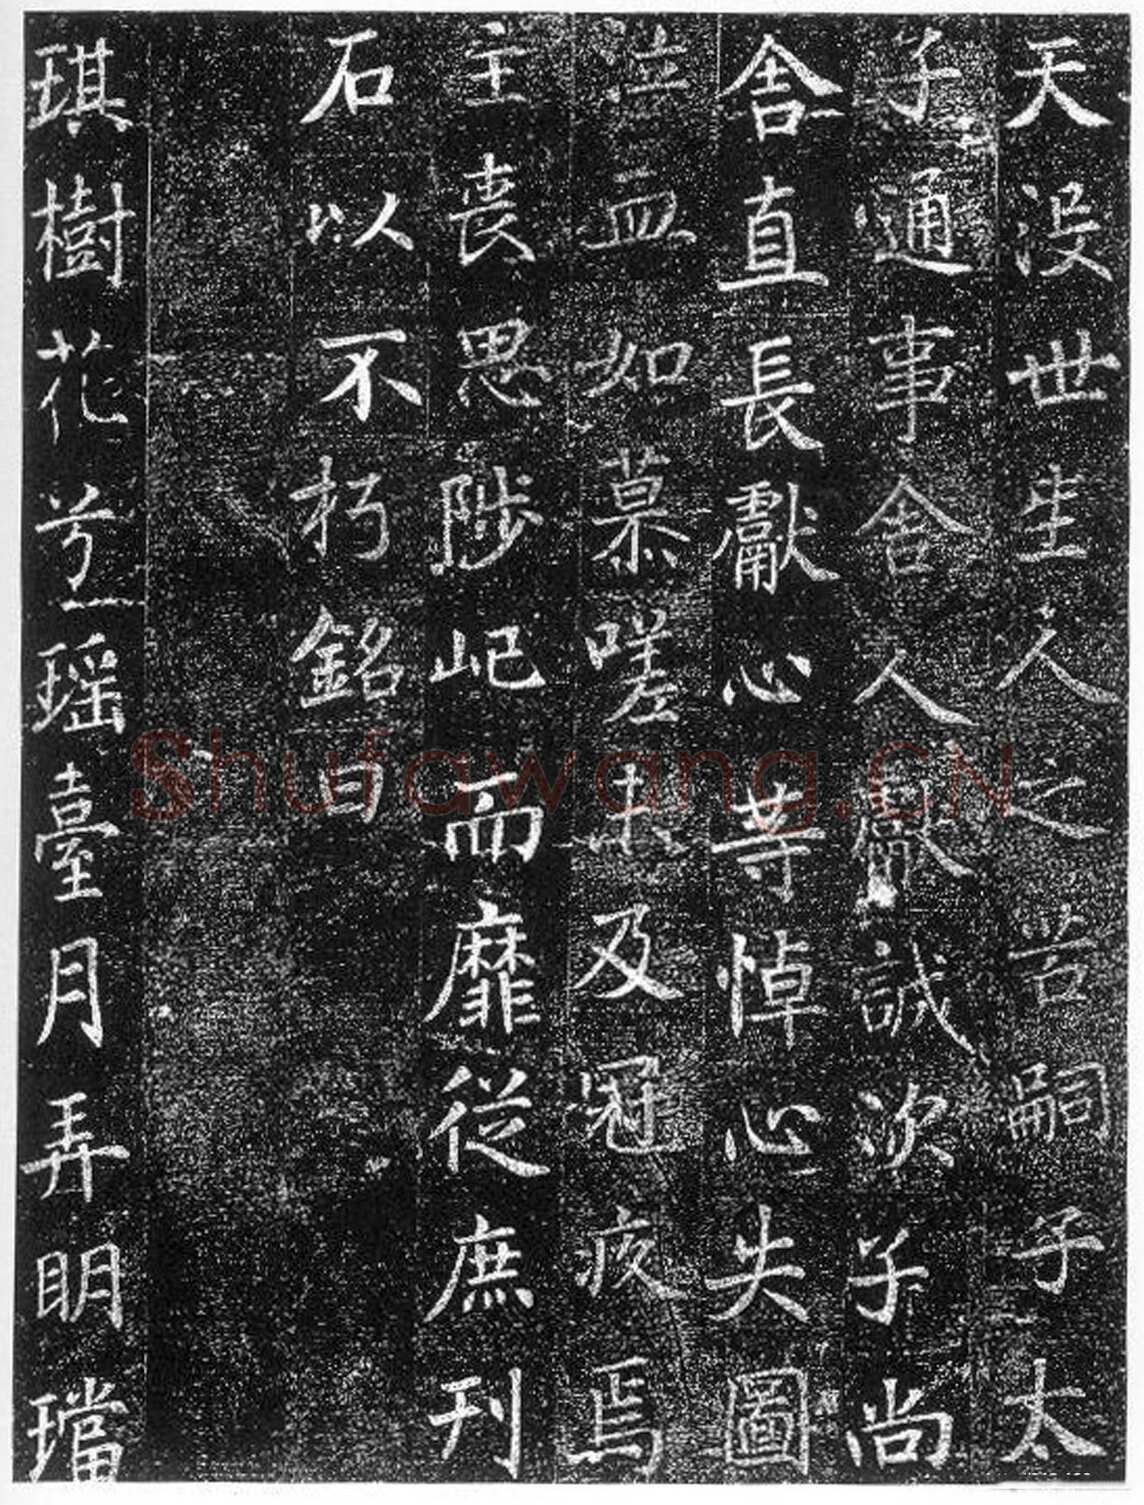 天没世生人之苦嗣子太
子通事舍人獻誠次子尚
舍直長獻心等悼心失圖
泣血如慕嗟未及冠疚焉
主喪思陟屺而靡從庶刊
石以不朽銘曰
琪樹花兮瑶臺月弄明璫
Shufawang.CN